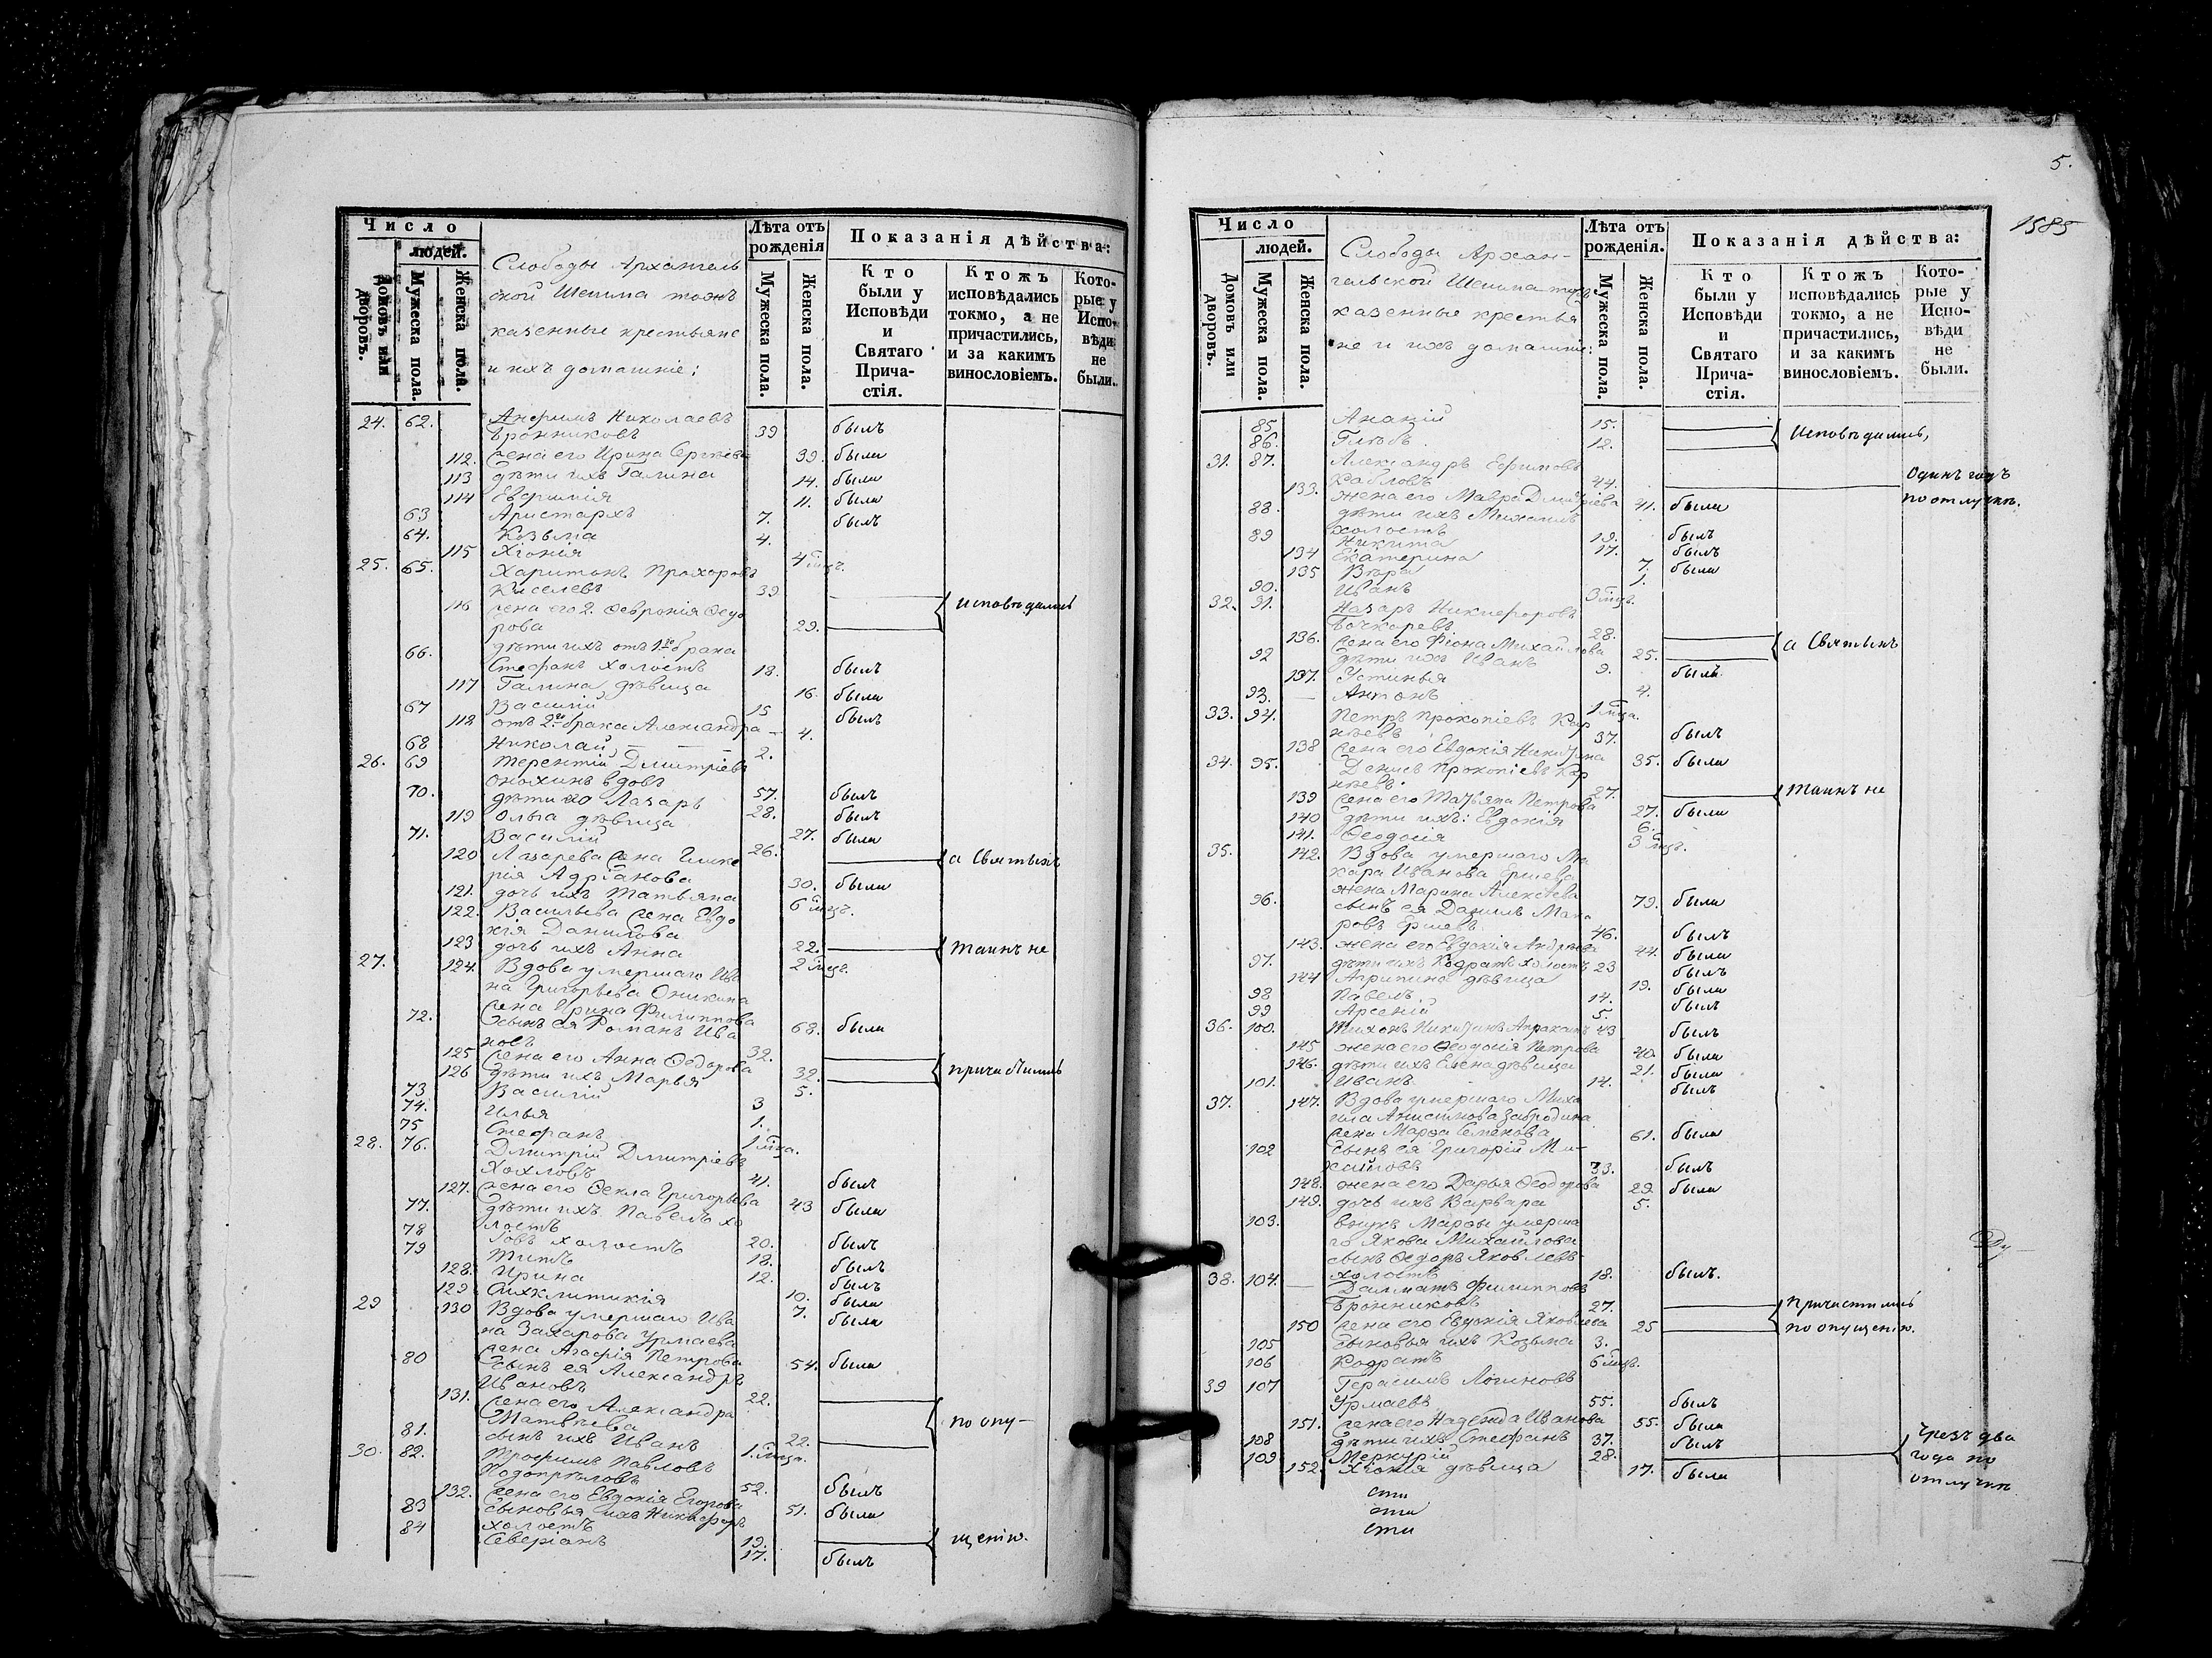 Число
людей.
Домовъ или дворовъ.
Мужеска пола.
Женска пола.
Слободы Архангель
ской Шешма тожъ
казенные крестьяне
и ихъ домашніе:
Лѣта отъ рожденія
Мужеска пола.
Женска пола.
Показанія дѣйства:
Кто были у Исповѣди и Святаго Причастія.
Ктожъ исповѣдались токмо, а не причастились, и за какимъ винословіемъ.
Которые у Исповѣди не были.
24. 62. Анфимъ Николаевъ
Бронниковъ 39 былъ
112. жена его Ирина Сергѣева 39. была
113 дѣти ихъ Галина 14. была
114 Евфимія 11. была
63 Аристархъ 7. былъ
64. Козьма 4.
115 Хіонія 4 мцъ.
25. 65. Харитонъ Прохоровъ
Киселевъ 39 исповѣдались
116 жена его 2. Февронія Федо
рова 29.
66. дѣти ихъ отъ 1го брака
Стефанъ холостъ 18. былъ
117 Галина дѣвица 16. была
67 Василій 15 былъ
118 отъ 2го брака Александра 4.
68 Николай 2.
26. 69 Терентій Дмитріевъ
Онохинъ вдовъ 57. былъ
70. дѣти его Лазарь 28. былъ
119 Ольга дѣвица 27. была
71. Василій 26. а Святыхъ
120 Лазарева жена Глике
рія Адріанова 30. была
121. дочь ихъ Татьяна 6 мцъ.
122. Васильева жена Евдо
кія Данилова 22. Таинъ не
123 дочь ихъ Анна 2 мцъ.
27. 124. Вдова умершаго Ива
на Григорьева Оникина
жена Ирина Филиппова 68. была
72. сынъ ея Романъ Ива
новъ 32.
125 жена его Анна Федорова 32. причастились
126 дѣти ихъ Марья 5.
73 Василій 3
74. Илья 1.
75 Стефанъ 1 мца.
28. 76. Дмитрій Дмитріевъ
Хохловъ 41. былъ
127. жена его Фекла Григорьева 43 была
77. дѣти ихъ Павелъ хо
лостъ 20. былъ
78 Іовъ холостъ 18. былъ
79 Титъ 12. былъ
128. Ирина 10. была
129 Синклитикія 7. была
29 130 Вдова умершаго Ива
на Захарова Урмаева
жена Агафія Петрова 54. была
80 сынъ ея Александръ
Ивановъ 22.
131. жена его Александра
Матвѣева 22. по опу-
81. сынъ ихъ Иванъ 1. мца.
30. 82. Трофимъ Павловъ
Подопрѣловъ 52. былъ
132. жена его Евдокія Егорова 51. была
83 сыновья ихъ Никифоръ
холостъ 19. щенію.
84 Северіанъ 17. былъ
5.
1585
Число
людей.
Домовъ или дворовъ.
Мужеска пола.
Женска пола.
Слободы Архан-
гельской Шешма тожъ
казенные крестья
не и ихъ домашніе:
Лѣта отъ рожденія.
Мужеска пола.
Женска пола.
Показанія дѣйства:
Кто были у Исповѣди и Святаго Причастія.
Ктожъ исповѣдались токмо, а не причастились, и за какимъ винословіемъ.
Которые у Исповѣди не были.
85. Ананій 15. Исповѣдались,
86. Глѣбъ. 12.
31. 87. Александръ Ефимовъ
Кабловъ 44. Одинъ годъ
по отлучкѣ.
133. жена его Мавра Дмитріева 41. была
88. дѣти ихъ Михаилъ
холостъ 19. былъ
89 Никита 17. былъ
134 Екатерина 7. была
135 Вѣра 1.
90. Иванъ 3 мцъ.
32. 91. Назаръ Никифоровъ
Бочкаревъ 28.
136. жена его Фіона Михайлова 25. а Святыхъ
92 дѣти ихъ Иванъ 9. былъ.
137. Устинья 4.
93. Антонъ 1 мца.
33. 94. Петръ Прокопіевъ Кор
нѣевъ 37. былъ
138 жена его Евдокія Никитина 35. была
34. 95. Денисъ Прокопіевъ Кор
нѣевъ 27. Таинъ не
139 жена его Татьяна Петрова 27. была
140 дѣти ихъ: Евдокія 6.
141. Феодосія 3 мцъ.
35. 142. Вдова умершаго Ма
кара Иванова Ершева
жена Марина Алексѣева 79. была
96. сынъ ея Данилъ Мака
ровъ Ершевъ 46. былъ
143. жена его Евдокія Андреева 44. была
97. дѣти ихъ Кодратъ холостъ 23 былъ
144 Агрипина дѣвица 19. была
98 Павелъ. 14. былъ
99 Арсеній 5.
36. 100. Тихонъ Никитинъ Апраксинъ 43 былъ
145 жена его Феодосія Петрова 40. была
146. дѣти ихъ Елена дѣвица 21. была
101. Иванъ 14. былъ
37. 147. Вдова умершаго Миха
ила Анисимова Забродина
жена Марфа Семенова 61. была
102 сынъ ея Григорій Ми-
хайловъ 33. былъ
148. жена его Дарья Феодорова 29. была
149. дочь ихъ Варвара 5.
103. внукъ Марфы умерша
го Якова Михайлова
сынъ Федоръ Яковлевъ
холостъ 18. былъ.
38. 104. Далматъ Филипповъ
Бронниковъ 27. Причастились
150 жена его Евдокія Яковлева 25 по опущенію.
105 сыновья ихъ Козьма 3.
106 Кодратъ 6 мцъ.
39 107 Герасимъ Логиновъ
Урмаевъ 55. былъ
151. жена его Надежда Иванова 55. была
108 дѣти ихъ Стефанъ 37. былъ
109 Меркурій 28. Чрезъ два
года по
отлучкѣ
152. Хіонія дѣвица 17. была
Ду-